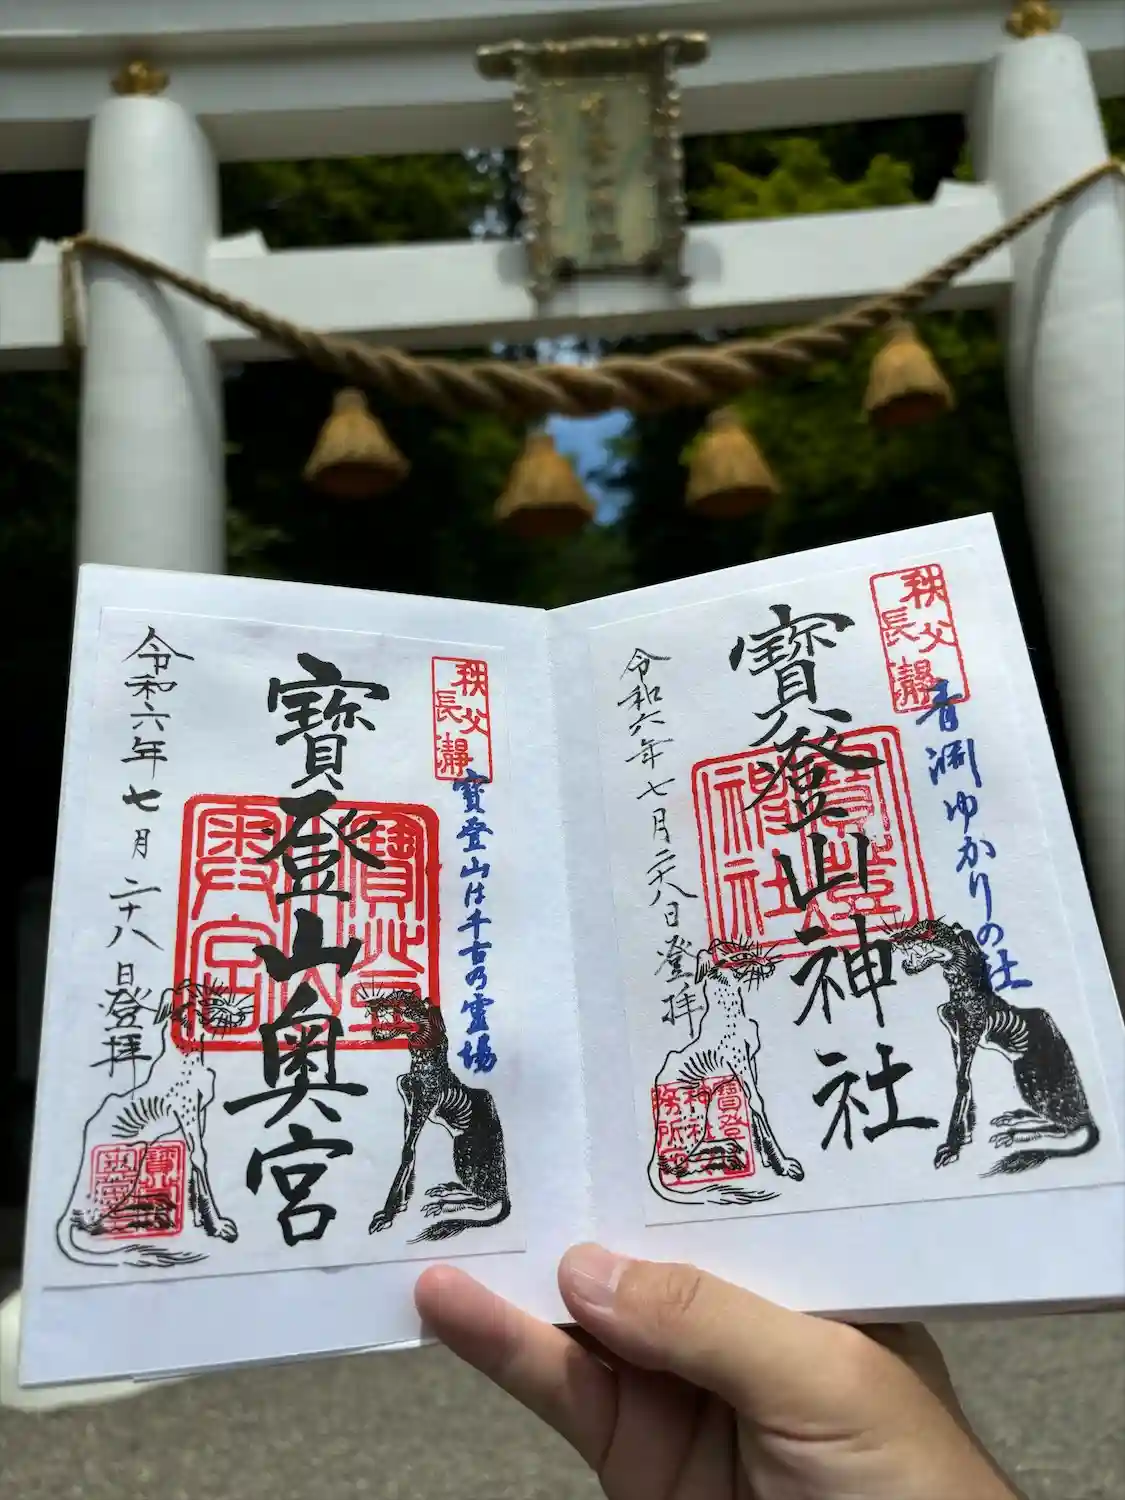 秩父
長瀞
青淵ゆかりの社
寳登山神社
令和六年七月二十八日登拝
寳登山
神社
寳登山
神社
務所印
秩父
長瀞
寳登山は千古乃霊場
寳登山奥宮
令和六年七月二十八日登拝
寳登
山
奥宮